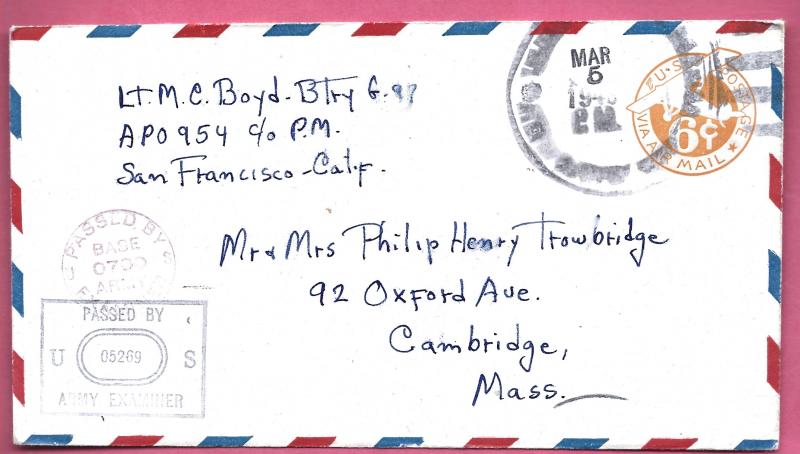 Lt. M. C. Boyd - Btry G. 97
APO 954 c/o P.M.
San Francisco - Calif.
MAR
5
U.S. POSTAGE
6¢
VIA AIR MAIL
PASSED BY
BASE
ARMY
Mr & Mrs Philip Henry Trowbridge
92 Oxford Ave.
Cambridge,
Mass.
PASSED BY
U 05269 S
ARMY EXAMINER